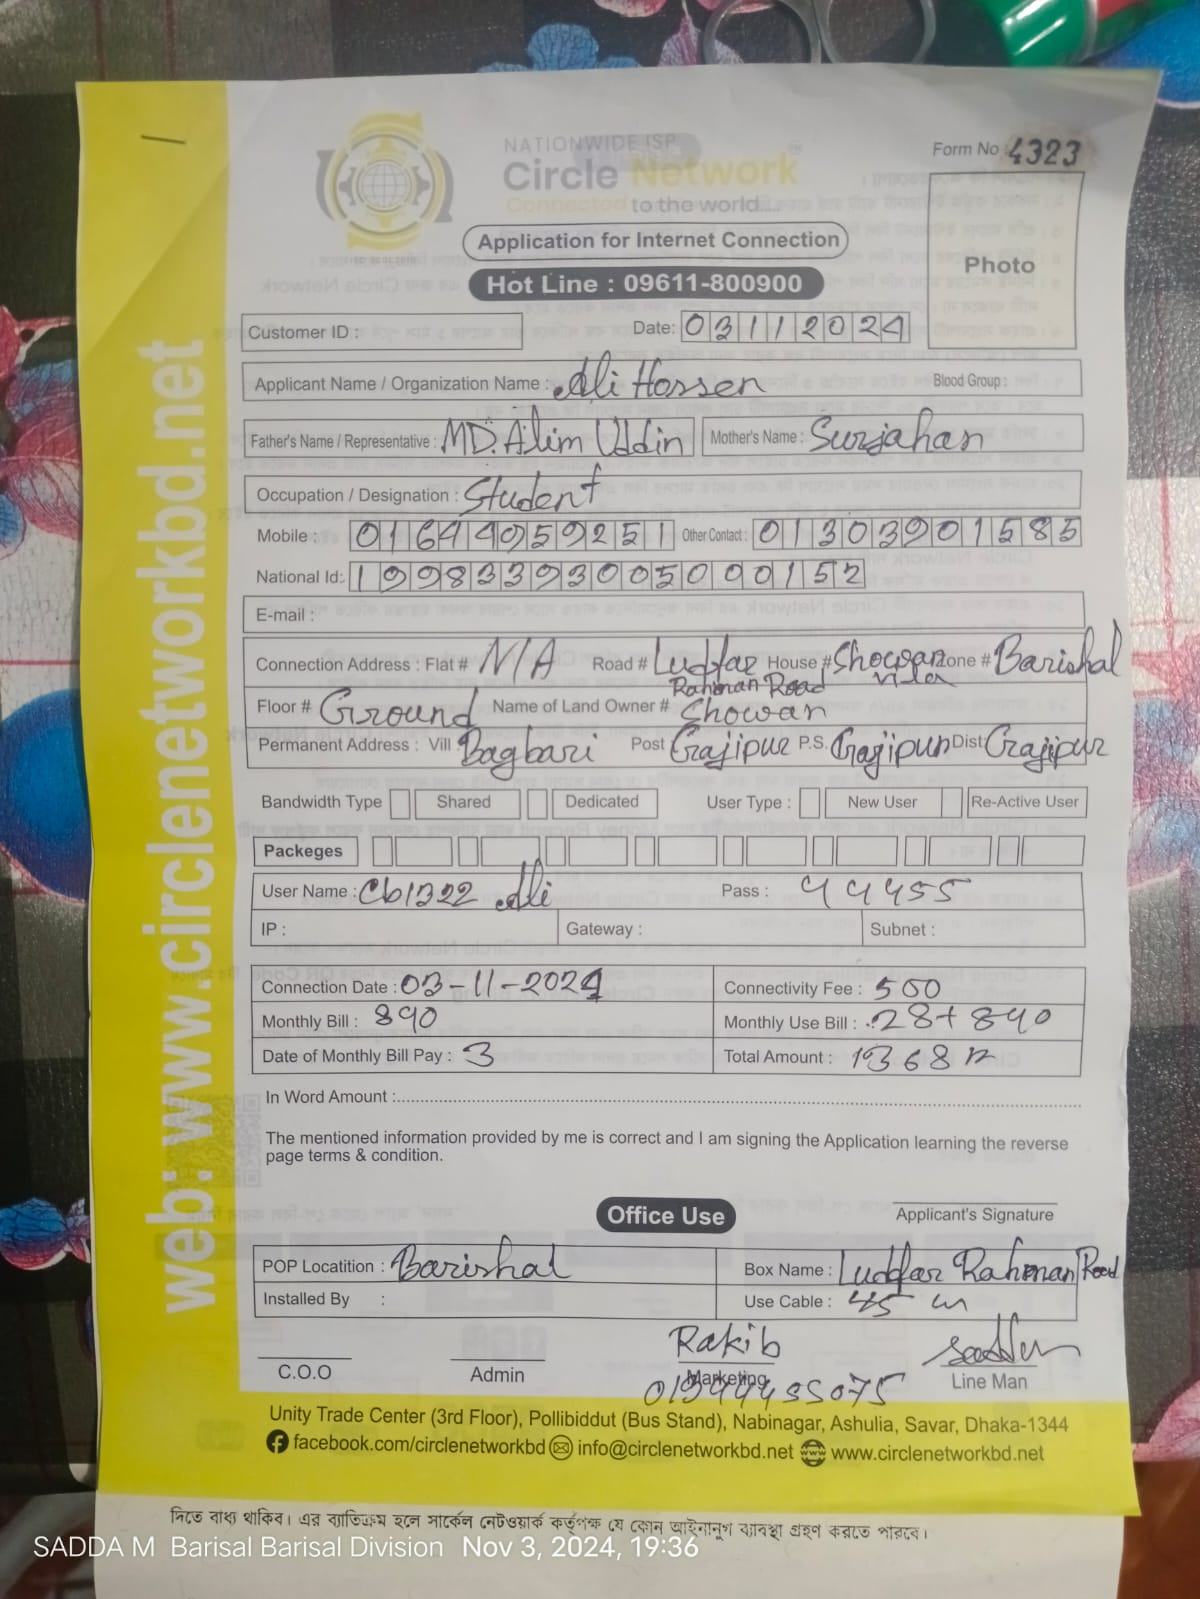 NATIONWIDE ISP
Circle Network
Connected to the world....
Form No 4323
Application for Internet Connection
Hot Line : 09611-800900
Photo
Customer ID :
Date: 03112024
Applicant Name / Organization Name : Ali Hossen Blood Group :
Father's Name / Representative : MD. Alim Uddin Mother's Name : Surjahan
Occupation / Designation : Student
Mobile : 01644059251 Other Contact : 01303901585
National Id: 19983393005000152
E-mail :
Connection Address : Flat # N/A Road # Ludfar Rahman Road House # Showan Villa Zone # Barishal
Floor # Ground Name of Land Owner # Showan
Permanent Address : Vill Bagbari Post Gajipur P.S. Gajipur Dist Gajipur
Bandwidth Type Shared Dedicated User Type : New User Re-Active User
Packeges
User Name : Cb1322 Ali Pass : 44455
IP : Gateway : Subnet :
Connection Date : 03-11-2024 Connectivity Fee : 500
Monthly Bill : 890 Monthly Use Bill : 28+840
Date of Monthly Bill Pay : 3 Total Amount : 1368
In Word Amount :
The mentioned information provided by me is correct and I am signing the Application learning the reverse
page terms & condition.
Office Use
Applicant's Signature
POP Locatition : Barishal Box Name : Ludfar Rahman Road
Installed By : Use Cable : 45 m
Rakib
C.O.O Admin Marketing Line Man
Unity Trade Center (3rd Floor), Pollibiddut (Bus Stand), Nabinagar, Ashulia, Savar, Dhaka-1344
facebook.com/circlenetworkbd info@circlenetworkbd.net www.circlenetworkbd.net
web: www.circlenetworkbd.net
দিতে বাধ্য থাকিব। এর ব্যতিক্রম হলে সার্কেল নেটওয়ার্ক কর্তৃপক্ষ যে কোন আইনানুগ ব্যবস্থা গ্রহণ করতে পারবে।
SADDA M Barisal Barisal Division Nov 3, 2024, 19:36